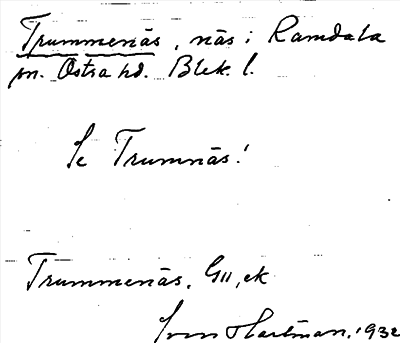 Trummenäs, näs i Ramdala
sn. Östra hd. Blek. l.
Se Trumnäs!
Trummenäs, GII, ek
Sven Hartman. 1932